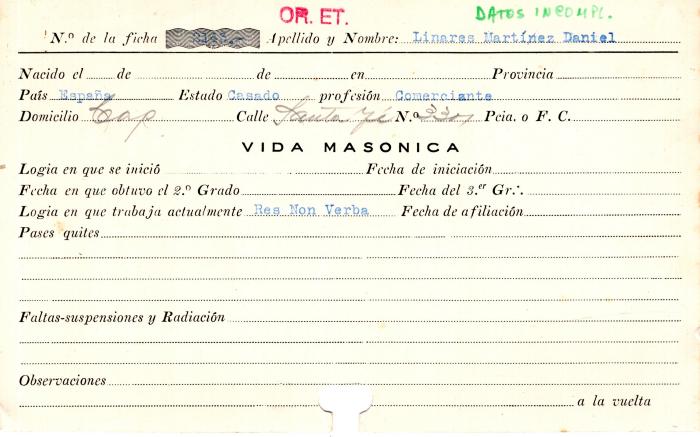 OR. ET. DATOS INCOMPL.
N.º de la ficha Apellido y Nombre: Linares Martínez Daniel
Nacido el de de en Provincia
País España Estado Casado profesión Comerciante
Domicilio Cap Calle Santa Fé N.º Pcia. o F. C.
VIDA MASONICA
Logia en que se inició Fecha de iniciación
Fecha en que obtuvo el 2.º Grado Fecha del 3.er Gr∴
Logia en que trabaja actualmente Res Non Verba Fecha de afiliación
Pases quites
Faltas-suspensiones y Radiación
Observaciones
a la vuelta